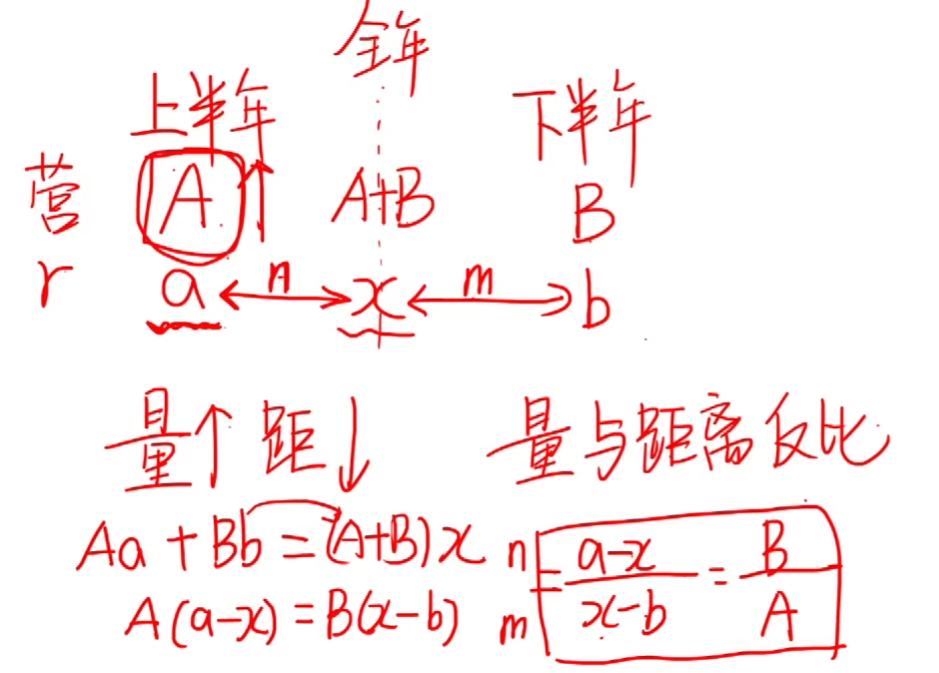 全年
上半年 下半年
营 A↑ A+B B
r a ←n→ x ←m→ b
量↑ 距↓ 量与距离反比
Aa+Bb=(A+B)x
A(a-x)=B(x-b)
n/m = (a-x)/(x-b) = B/A